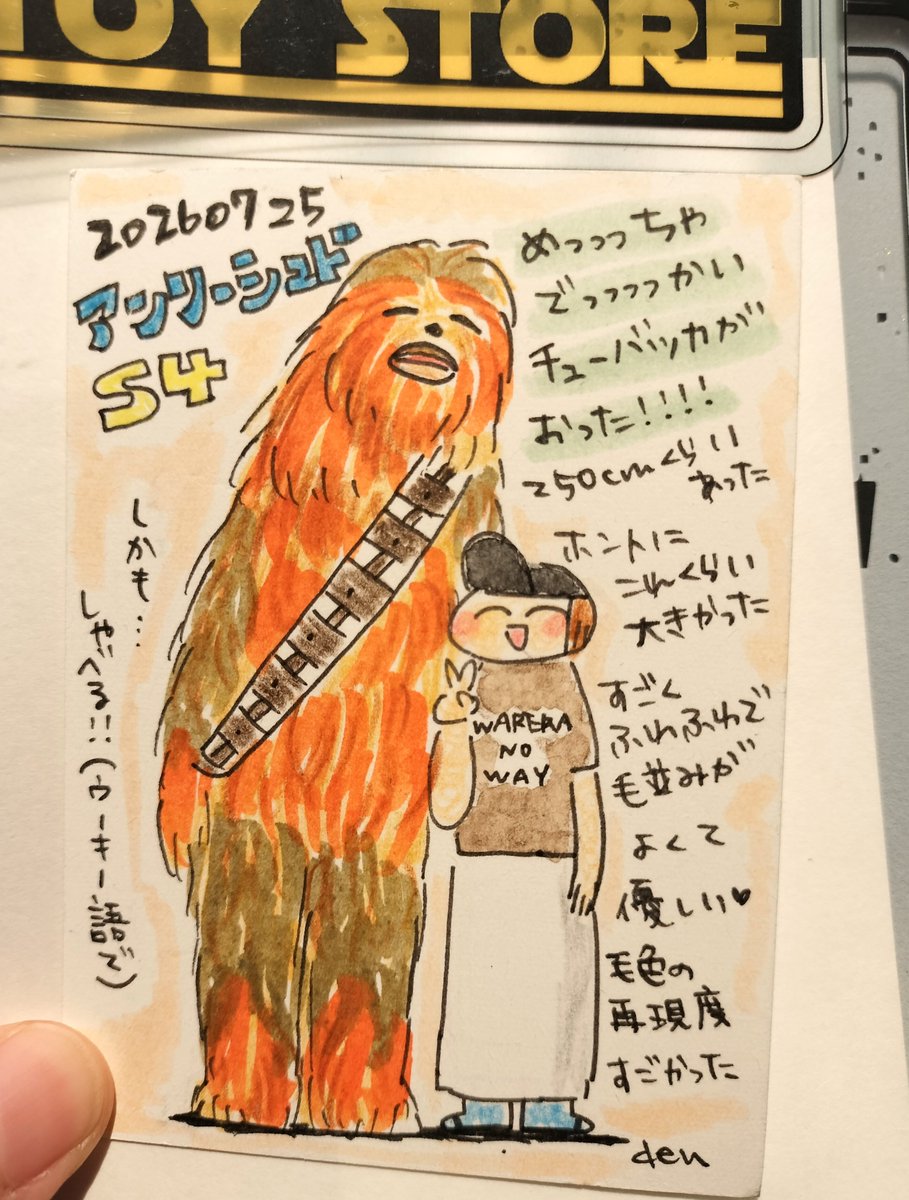 TOY STORE
20260725
アンリーシュド
S4
めっっっちゃ
でっっっっかい
チューバッカが
おった!!!!
250cmくらい
あった
ホントに
これくらい
大きかった
すごく
ふわふわで
毛並みが
よくて
優しい♥
毛色の
再現度
すごかった
しかも…
しゃべる!!(ウーキー語で)
WAREWA
NO
WAY
den